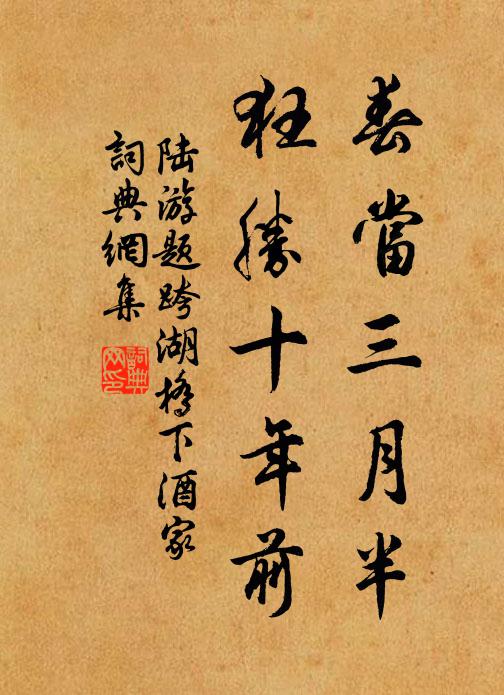 春當三月半
狂勝十年前
陸游題跨湖橋下酒家
詞典網集
詞典網印